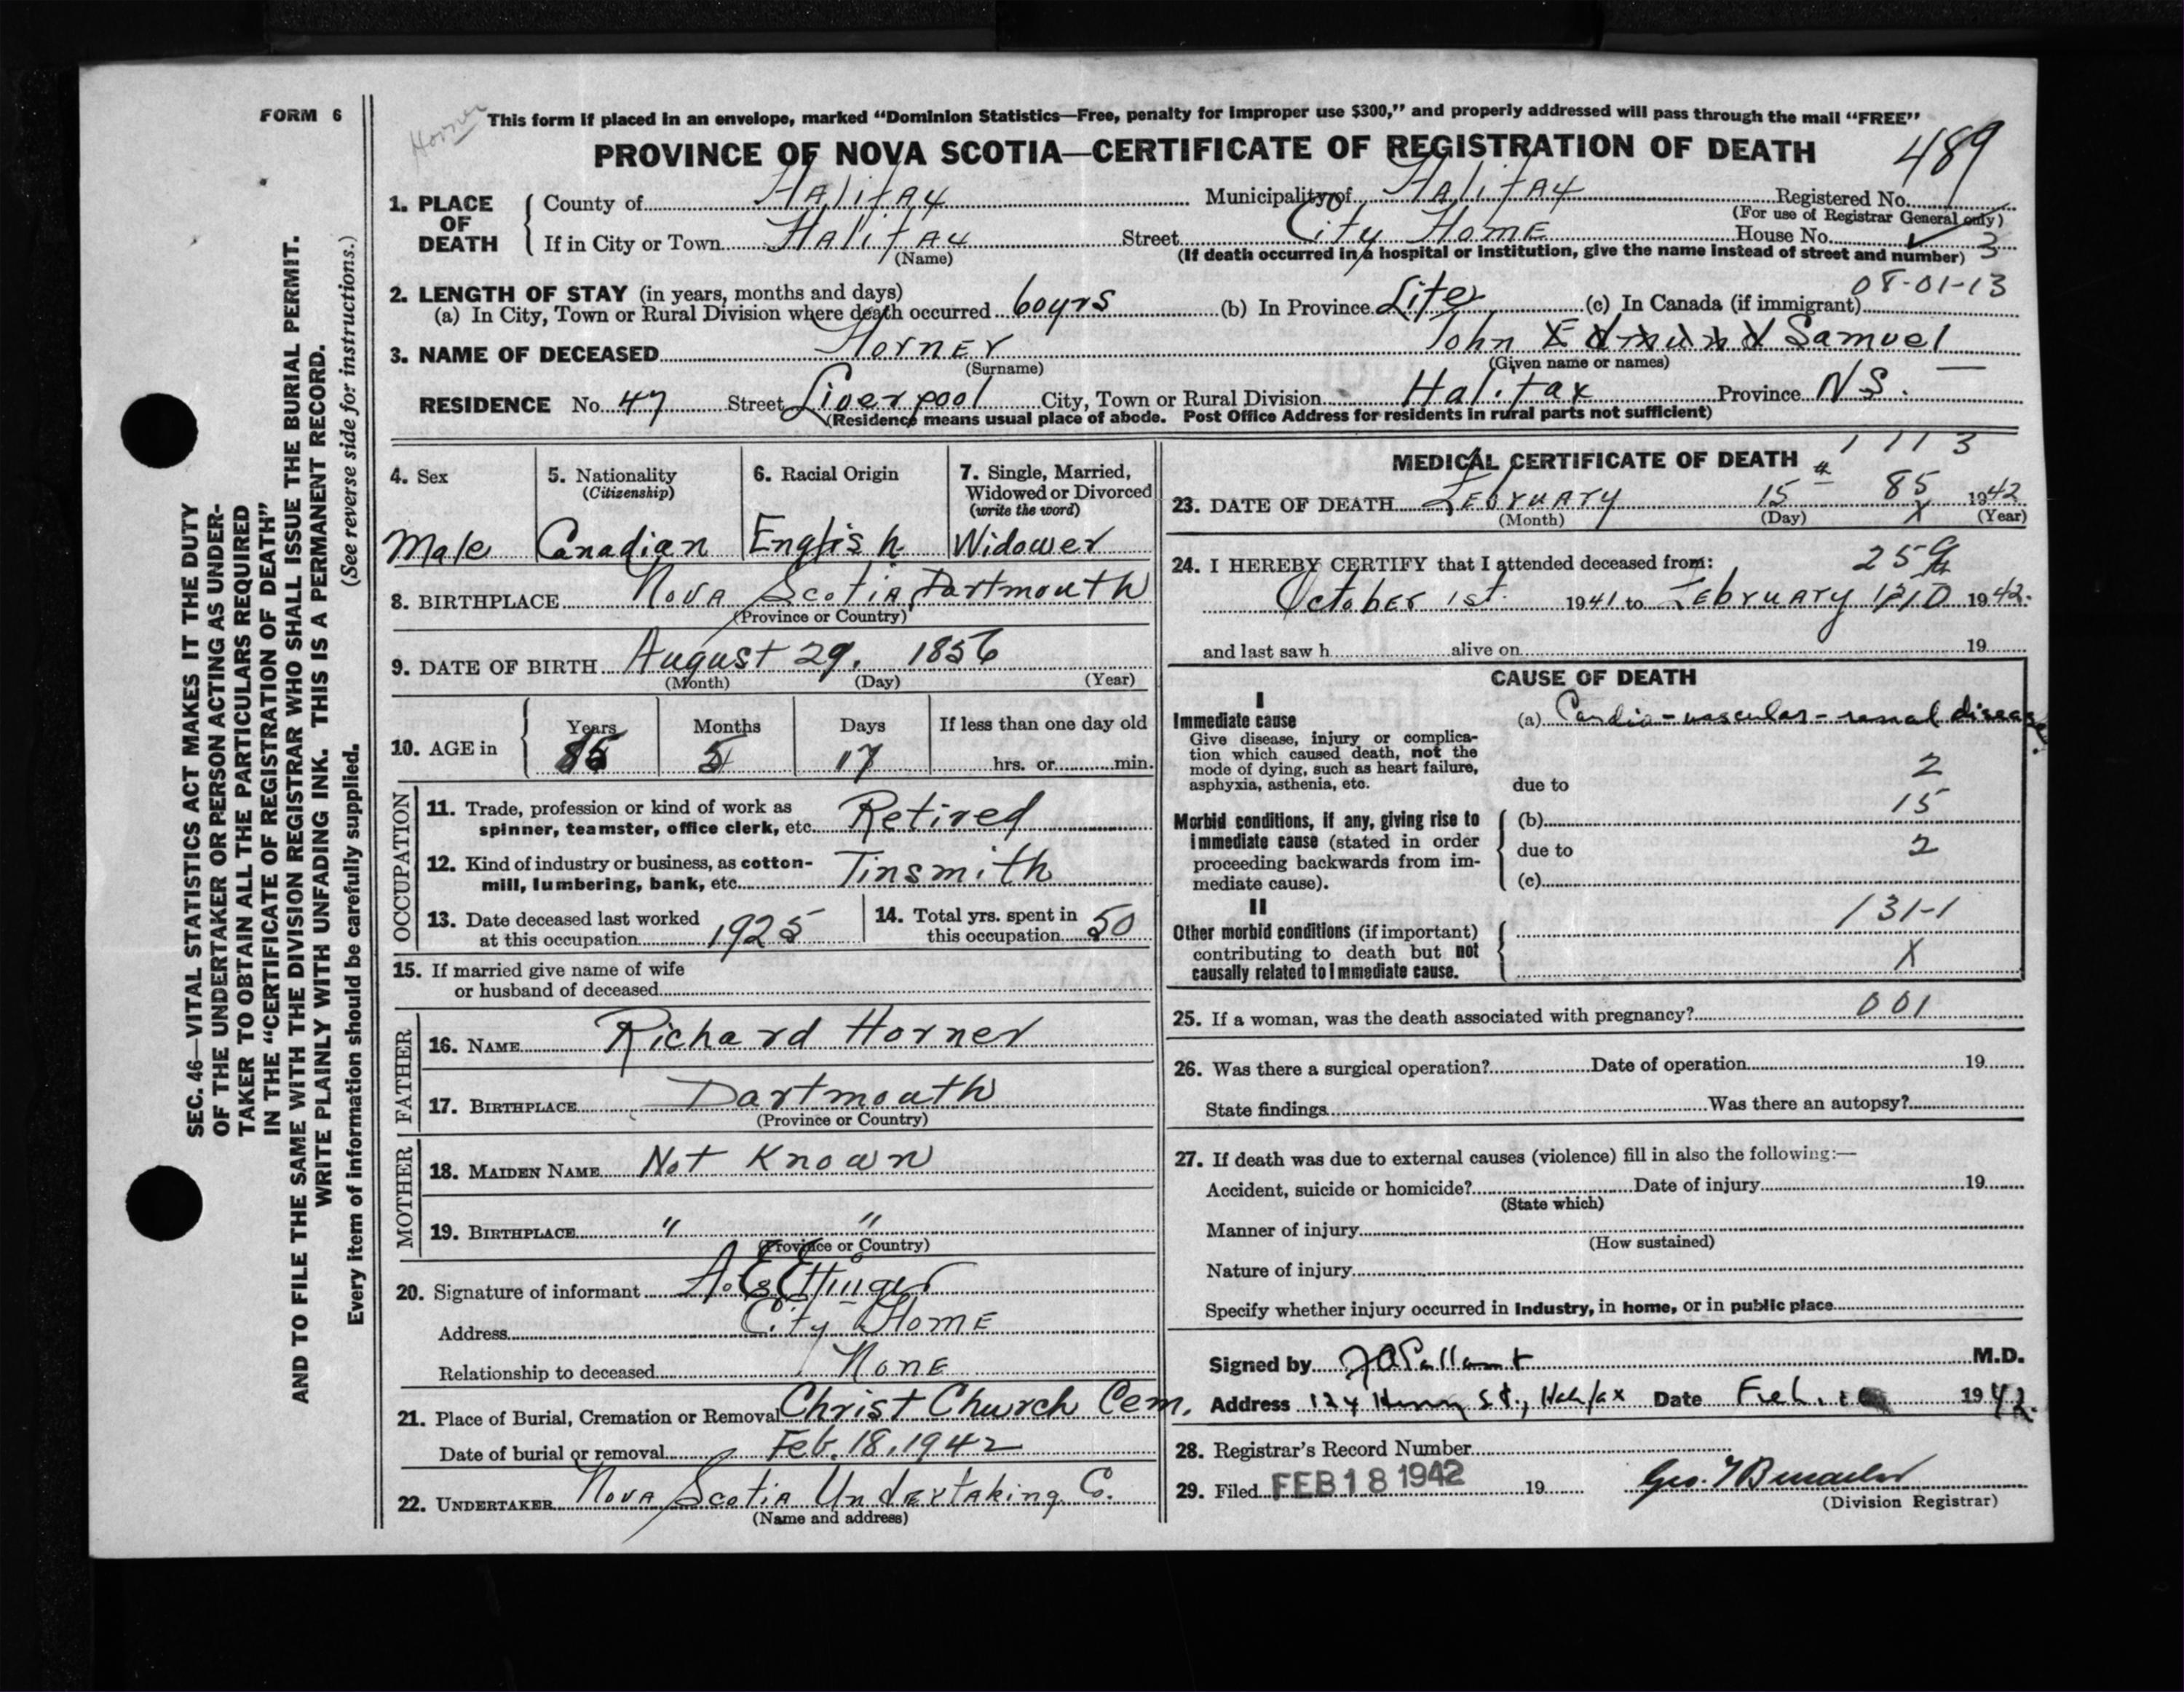 FORM 6
Horner
This form if placed in an envelope, marked "Dominion Statistics—Free, penalty for improper use $300," and properly addressed will pass through the mail "FREE"
PROVINCE OF NOVA SCOTIA—CERTIFICATE OF REGISTRATION OF DEATH
489
1. PLACE OF DEATH County of Halifax Municipality of Halifax Registered No.
(For use of Registrar General only)
If in City or Town Halifax Street City Home House No. 3
(Name) (If death occurred in a hospital or institution, give the name instead of street and number)
08-01-13
2. LENGTH OF STAY (in years, months and days)
(a) In City, Town or Rural Division where death occurred 60yrs (b) In Province Life (c) In Canada (if immigrant)
3. NAME OF DECEASED Horner John Edmund Samuel
(Surname) (Given name or names)
RESIDENCE No. 47 Street Liverpool City, Town or Rural Division Halifax Province NS.
(Residence means usual place of abode. Post Office Address for residents in rural parts not sufficient)
4. Sex Male
5. Nationality (Citizenship) Canadian
6. Racial Origin English
7. Single, Married, Widowed or Divorced (write the word) Widower
8. BIRTHPLACE Nova Scotia Dartmouth
(Province or Country)
9. DATE OF BIRTH August 29, 1856
(Month) (Day) (Year)
10. AGE in Years 85 Months 5 Days 17 If less than one day old hrs. or min.
OCCUPATION
11. Trade, profession or kind of work as spinner, teamster, office clerk, etc. Retired
12. Kind of industry or business, as cotton-mill, lumbering, bank, etc. Tinsmith
13. Date deceased last worked at this occupation 1925
14. Total yrs. spent in this occupation 50
15. If married give name of wife or husband of deceased
FATHER
16. NAME Richard Horner
17. BIRTHPLACE Dartmouth
(Province or Country)
MOTHER
18. MAIDEN NAME Not Known
19. BIRTHPLACE " "
(Province or Country)
20. Signature of informant A. E. Ettinger
Address City Home
Relationship to deceased None
21. Place of Burial, Cremation or Removal Christ Church Cem.
Date of burial or removal Feb. 18, 1942
22. UNDERTAKER Nova Scotia Undertaking Co.
(Name and address)
MEDICAL CERTIFICATE OF DEATH
1 1 1 3
23. DATE OF DEATH February 15 85 1942
(Month) (Day) X (Year)
24. I HEREBY CERTIFY that I attended deceased from:
259
October 1st 1941 to February 1942.
and last saw h alive on 19
CAUSE OF DEATH
I
Immediate cause
Give disease, injury or complication which caused death, not the mode of dying, such as heart failure, asphyxia, asthenia, etc.
(a) Cardio-vascular-renal disease
2
due to
15
Morbid conditions, if any, giving rise to immediate cause (stated in order proceeding backwards from immediate cause).
(b)
due to 2
(c)
II
131-1
Other morbid conditions (if important) contributing to death but not causally related to immediate cause.
X
25. If a woman, was the death associated with pregnancy? 001
26. Was there a surgical operation? Date of operation 19
State findings Was there an autopsy?
27. If death was due to external causes (violence) fill in also the following:—
Accident, suicide or homicide? Date of injury 19
(State which)
Manner of injury
(How sustained)
Nature of injury
Specify whether injury occurred in industry, in home, or in public place
Signed by M.D.
Address 124 Henry St., Halifax Date Feb. 1942.
28. Registrar's Record Number
29. Filed FEB 18 1942 19
(Division Registrar)
SEC. 46—VITAL STATISTICS ACT MAKES IT THE DUTY
OF THE UNDERTAKER OR PERSON ACTING AS UNDER-
TAKER TO OBTAIN ALL THE PARTICULARS REQUIRED
IN THE "CERTIFICATE OF REGISTRATION OF DEATH"
AND TO FILE THE SAME WITH THE DIVISION REGISTRAR WHO SHALL ISSUE THE BURIAL PERMIT.
WRITE PLAINLY WITH UNFADING INK. THIS IS A PERMANENT RECORD.
Every item of information should be carefully supplied. (See reverse side for instructions.)